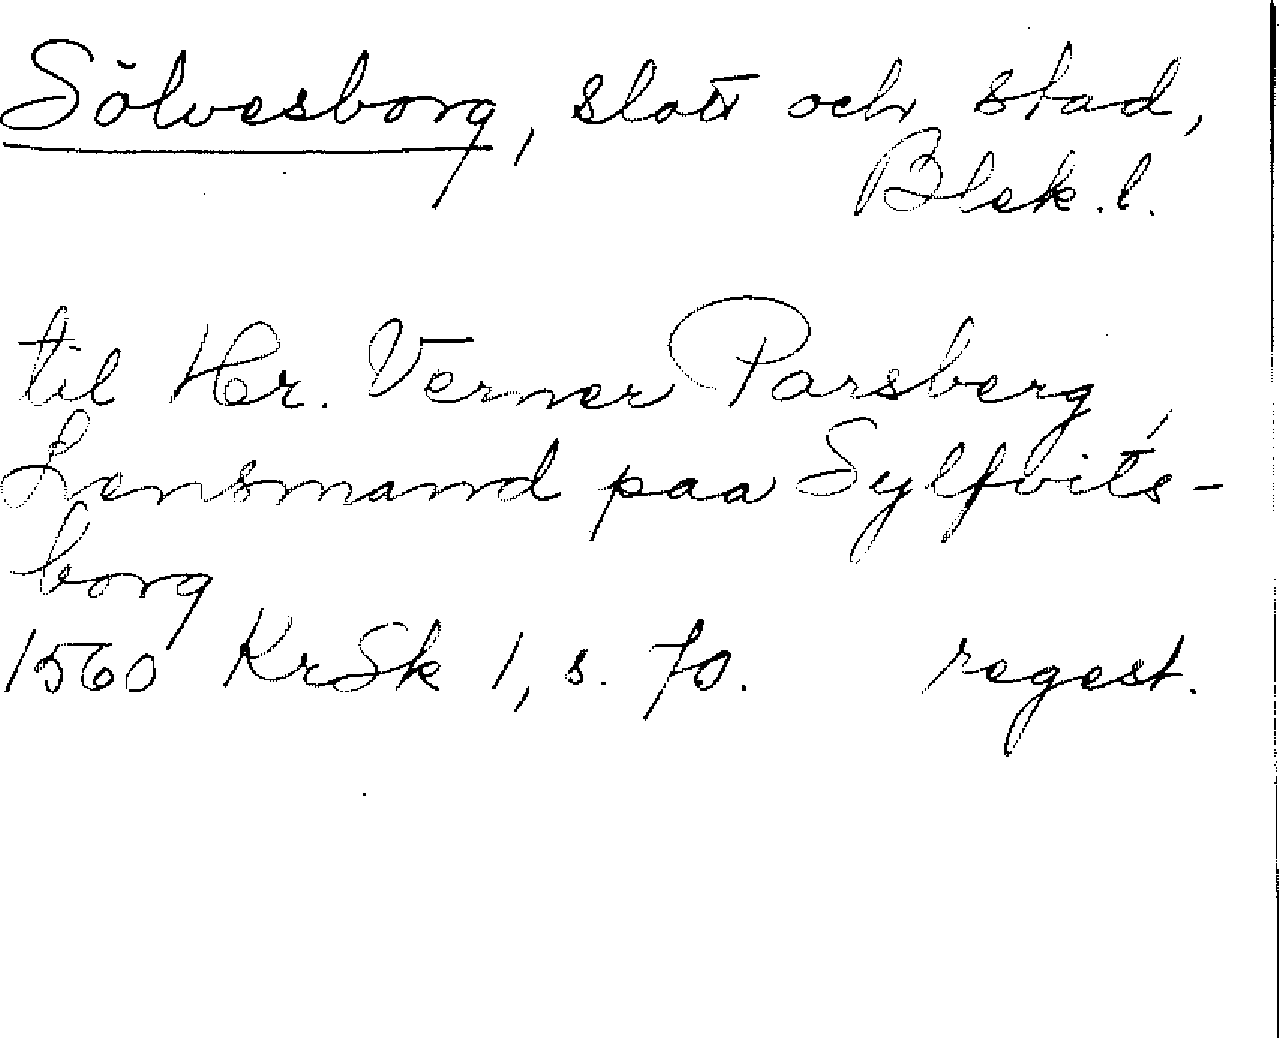 Sölvesborg, slott och stad,
Blek. l.
til Her. Verner Parsberg,
Lensmand paa Sylfvits-
borg
1560 KrSk 1, s. 70. regest.